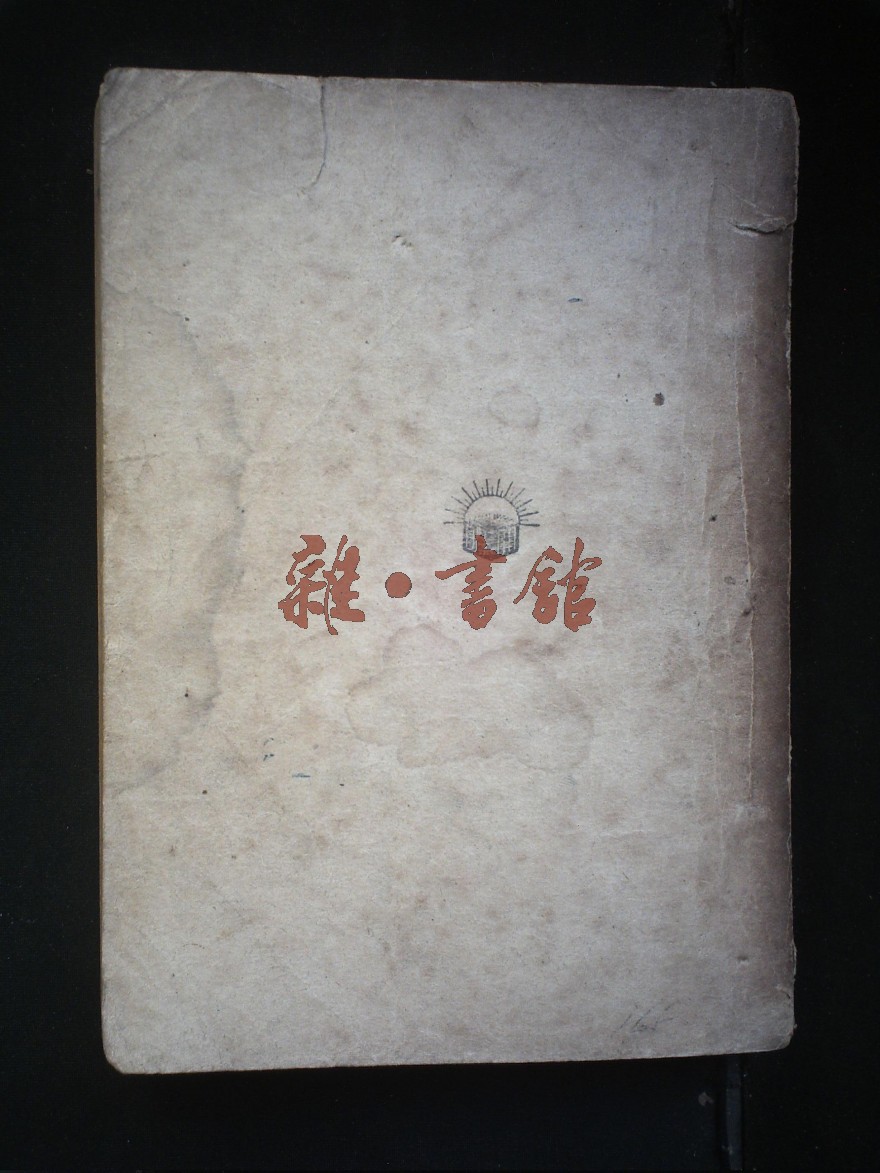 雜·書館
165